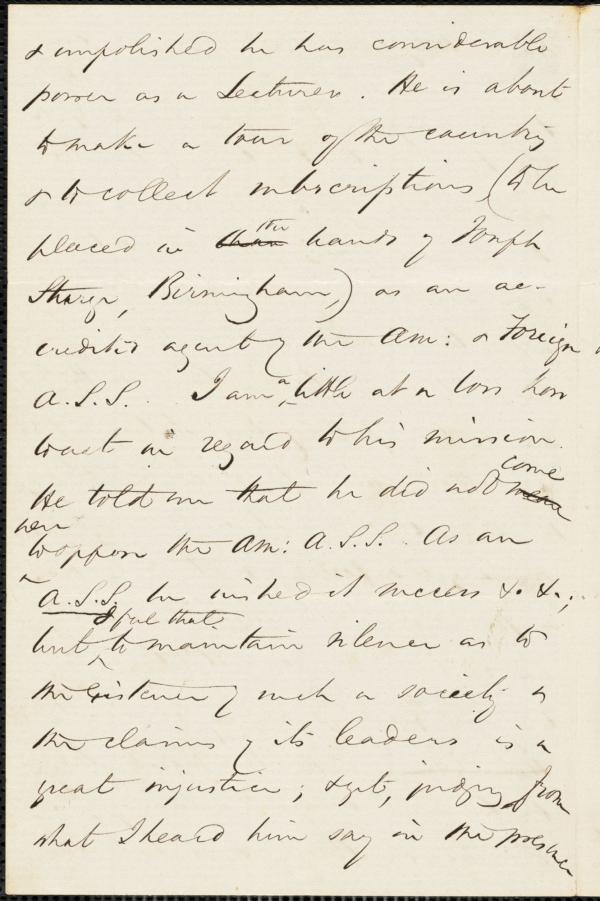 & unpolished he has considerable
power as a Lecturer. He is about
to make a tour of the country
& to collect subscriptions (to be
placed in the hands of Joseph
Sturge, Birmingham,) as an ac-
credited agent of the Am: & Foreign
A.S.S. I am a little at a loss how
to act in regard to his mission.
He told me that he did not come
here
to oppose the Am: A.S.S. As an
A.S.S. he wished it success &c. &c.;
I feel that
but to maintain silence as to
the existence of such a society &
the claims of its leaders is a
great injustice; & yet, judging from
what I heard him say in the presence